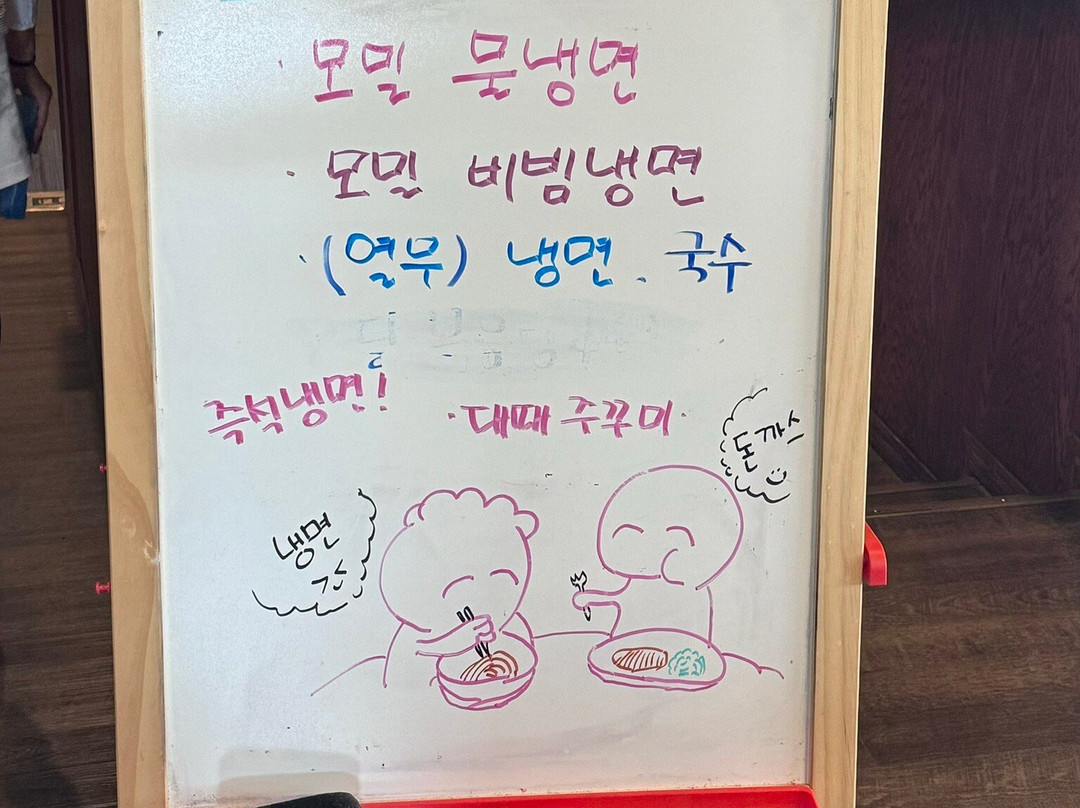 · 모밀 물냉면
· 모밀 비빔냉면
· (열무) 냉면. 국수
즉석냉면!
· 대패 주꾸미 ·
돈까스
냉면